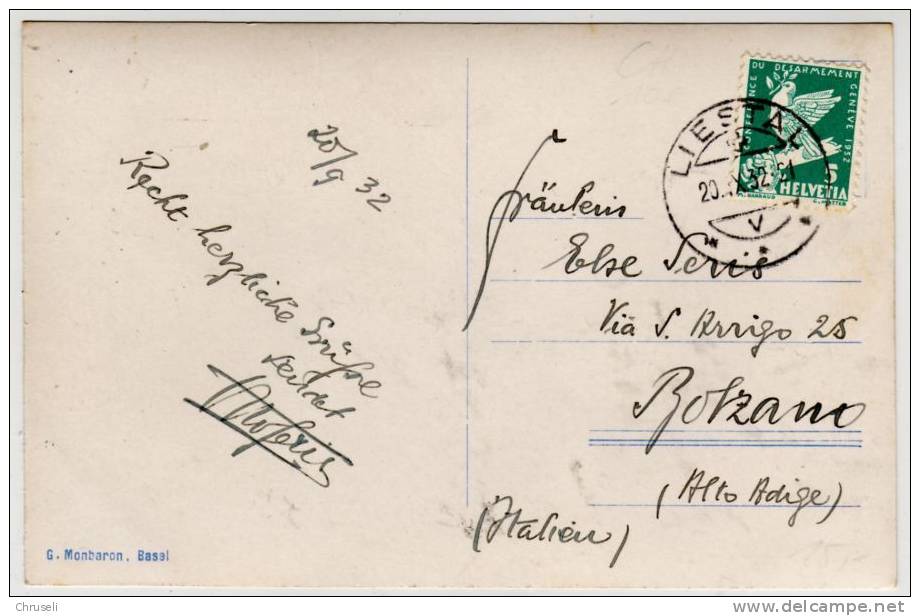 20/9 32
Recht herzliche Grüsse
sendet
G. Monbaron, Basel
CONFERENCE DU DESARMEMENT GENEVE 1932
5
HELVETIA
LIESTAL
20.IX.32
V
Fräulein
Else
Via S. Arrigo 25
Bolzano
(Alto Adige)
(Italien)
Chruseli